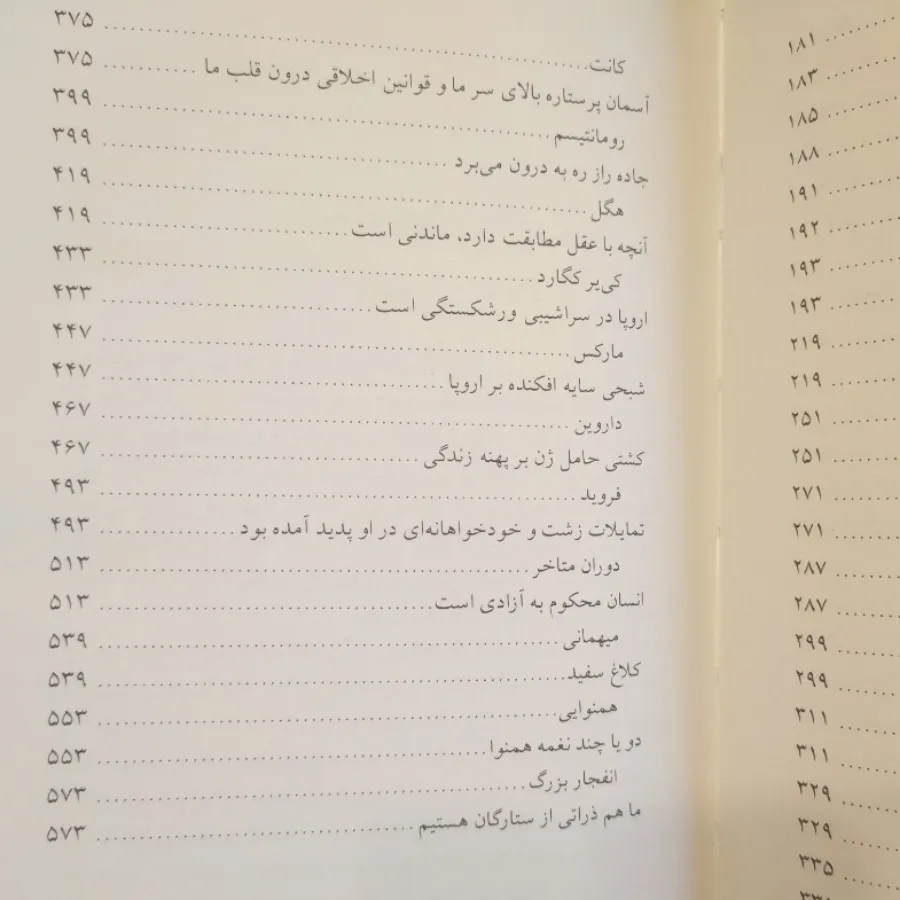 ۱۸۱
۱۸۳
۱۸۵
۱۸۸
۱۹۱
۱۹۲
۱۹۳
۱۹۳
۲۱۹
۲۱۹
۲۵۱
۲۵۱
۲۷۱
۲۷۱
۲۸۷
۲۸۷
۲۹۹
۲۹۹
۳۱۱
۳۱۱
۳۲۹
۳۲۹
۳۳۵
کانت ........ ۳۷۵
آسمان پرستاره بالای سر ما و قوانین اخلاقی درون قلب ما ........ ۳۷۵
رومانتیسم ........ ۳۹۹
جاده راز ره به درون می‌برد ........ ۳۹۹
هگل ........ ۴۱۹
آنچه با عقل مطابقت دارد، ماندنی است ........ ۴۱۹
کی‌یر کگارد ........ ۴۳۳
اروپا در سراشیبی ورشکستگی است ........ ۴۳۳
مارکس ........ ۴۴۷
شبحی سایه افکنده بر اروپا ........ ۴۴۷
داروین ........ ۴۶۷
کشتی حامل ژن بر پهنه زندگی ........ ۴۶۷
فروید ........ ۴۹۳
تمایلات زشت و خودخواهانه‌ای در او پدید آمده بود ........ ۴۹۳
دوران متاخر ........ ۵۱۳
انسان محکوم به آزادی است ........ ۵۱۳
میهمانی ........ ۵۳۹
کلاغ سفید ........ ۵۳۹
همنوایی ........ ۵۵۳
دو یا چند نغمه همنوا ........ ۵۵۳
انفجار بزرگ ........ ۵۷۳
ما هم ذراتی از ستارگان هستیم ........ ۵۷۳